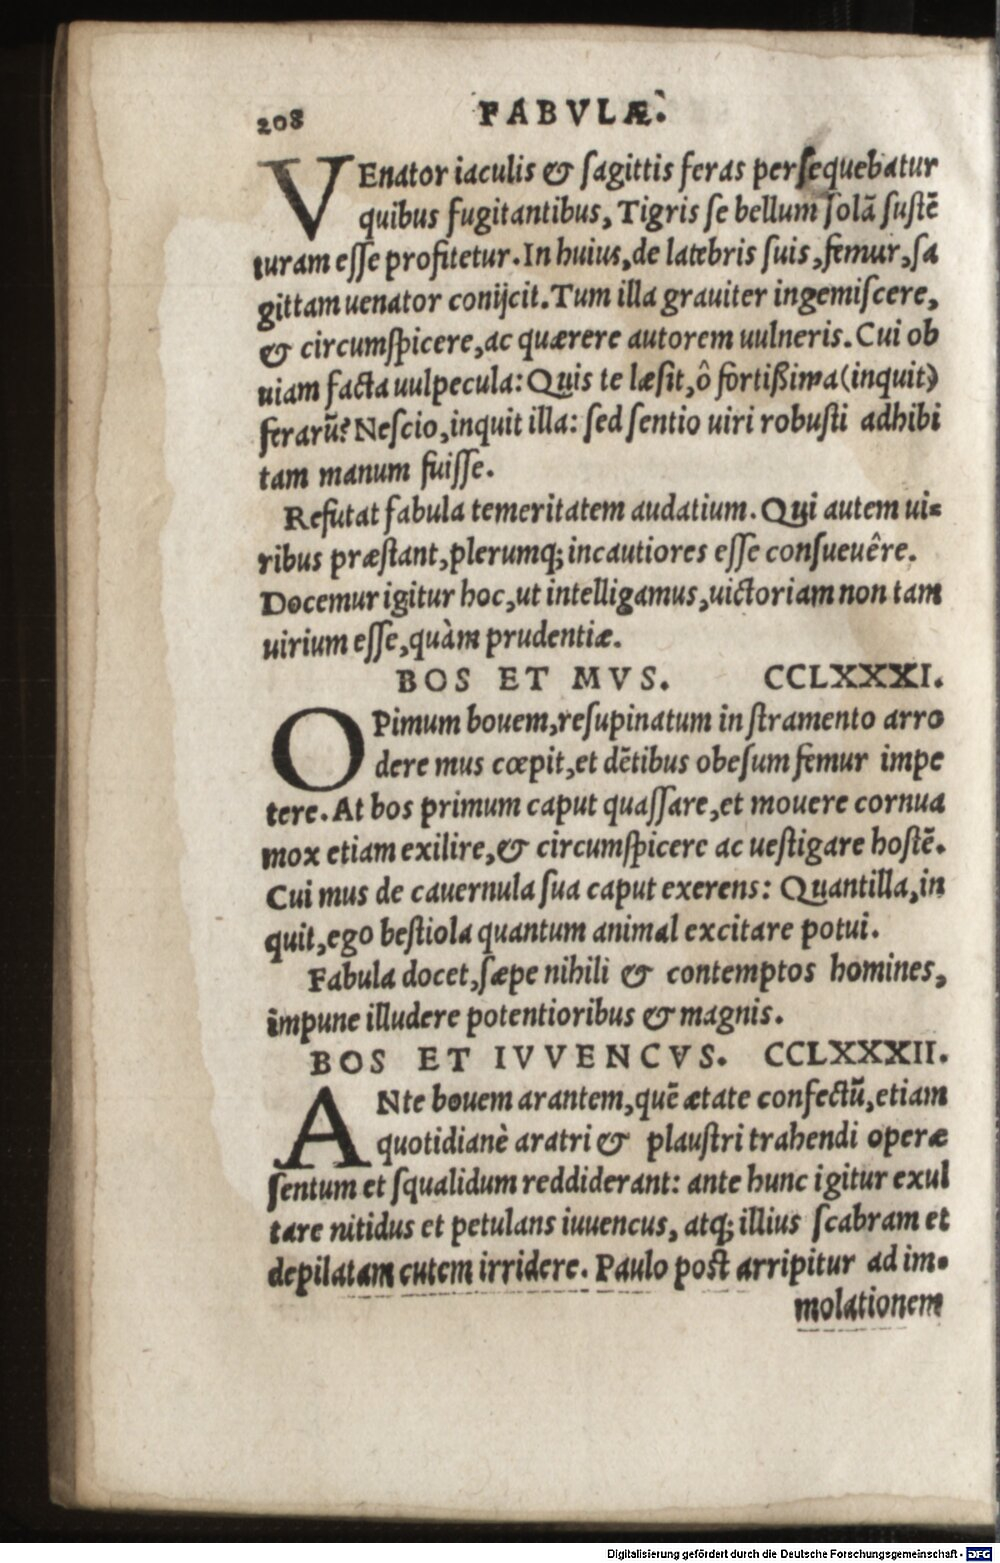 208 FABVLÆ.
VEnator iaculis & ſagittis feras perſequebatur
quibus fugitantibus, Tigris ſe bellum ſolã ſuſtẽ
turam eſſe profitetur. In huius, de latebris ſuis, femur, ſa
gittam uenator conijcit. Tum illa grauiter ingemiſcere,
& circumſpicere, ac quærere autorem uulneris. Cui ob
uiam facta uulpecula: Quis te læſit, ô fortißima (inquit)
ferarũ? Neſcio, inquit illa: ſed ſentio uiri robuſti adhibi
tam manum fuiſſe.
Refutat fabula temeritatem audatium. Qui autem ui=
ribus præſtant, plerumq; incautiores eſſe conſueuêre.
Docemur igitur hoc, ut intelligamus, uictoriam non tam
uirium eſſe, quàm prudentiæ.
BOS ET MVS. CCLXXXI.
OPimum bouem, reſupinatum in ſtramento arro
dere mus cœpit, et dẽtibus obeſum femur impe
tere. At bos primum caput quaſſare, et mouere cornua
mox etiam exilire, & circumſpicere ac ueſtigare hoſtẽ.
Cui mus de cauernula ſua caput exerens: Quantilla, in
quit, ego beſtiola quantum animal excitare potui.
Fabula docet, ſæpe nihili & contemptos homines,
impune illudere potentioribus & magnis.
BOS ET IVVENCVS. CCLXXXII.
ANte bouem arantem, quẽ ætate confectũ, etiam
quotidianè aratri & plauſtri trahendi operæ
ſentum et ſqualidum reddiderant: ante hunc igitur exul
tare nitidus et petulans iuuencus, atq; illius ſcabram et
depilatam cutem irridere. Paulo poſt arripitur ad im-
molationem
Digitalisierung gefördert durch die Deutsche Forschungsgemeinschaft - DFG